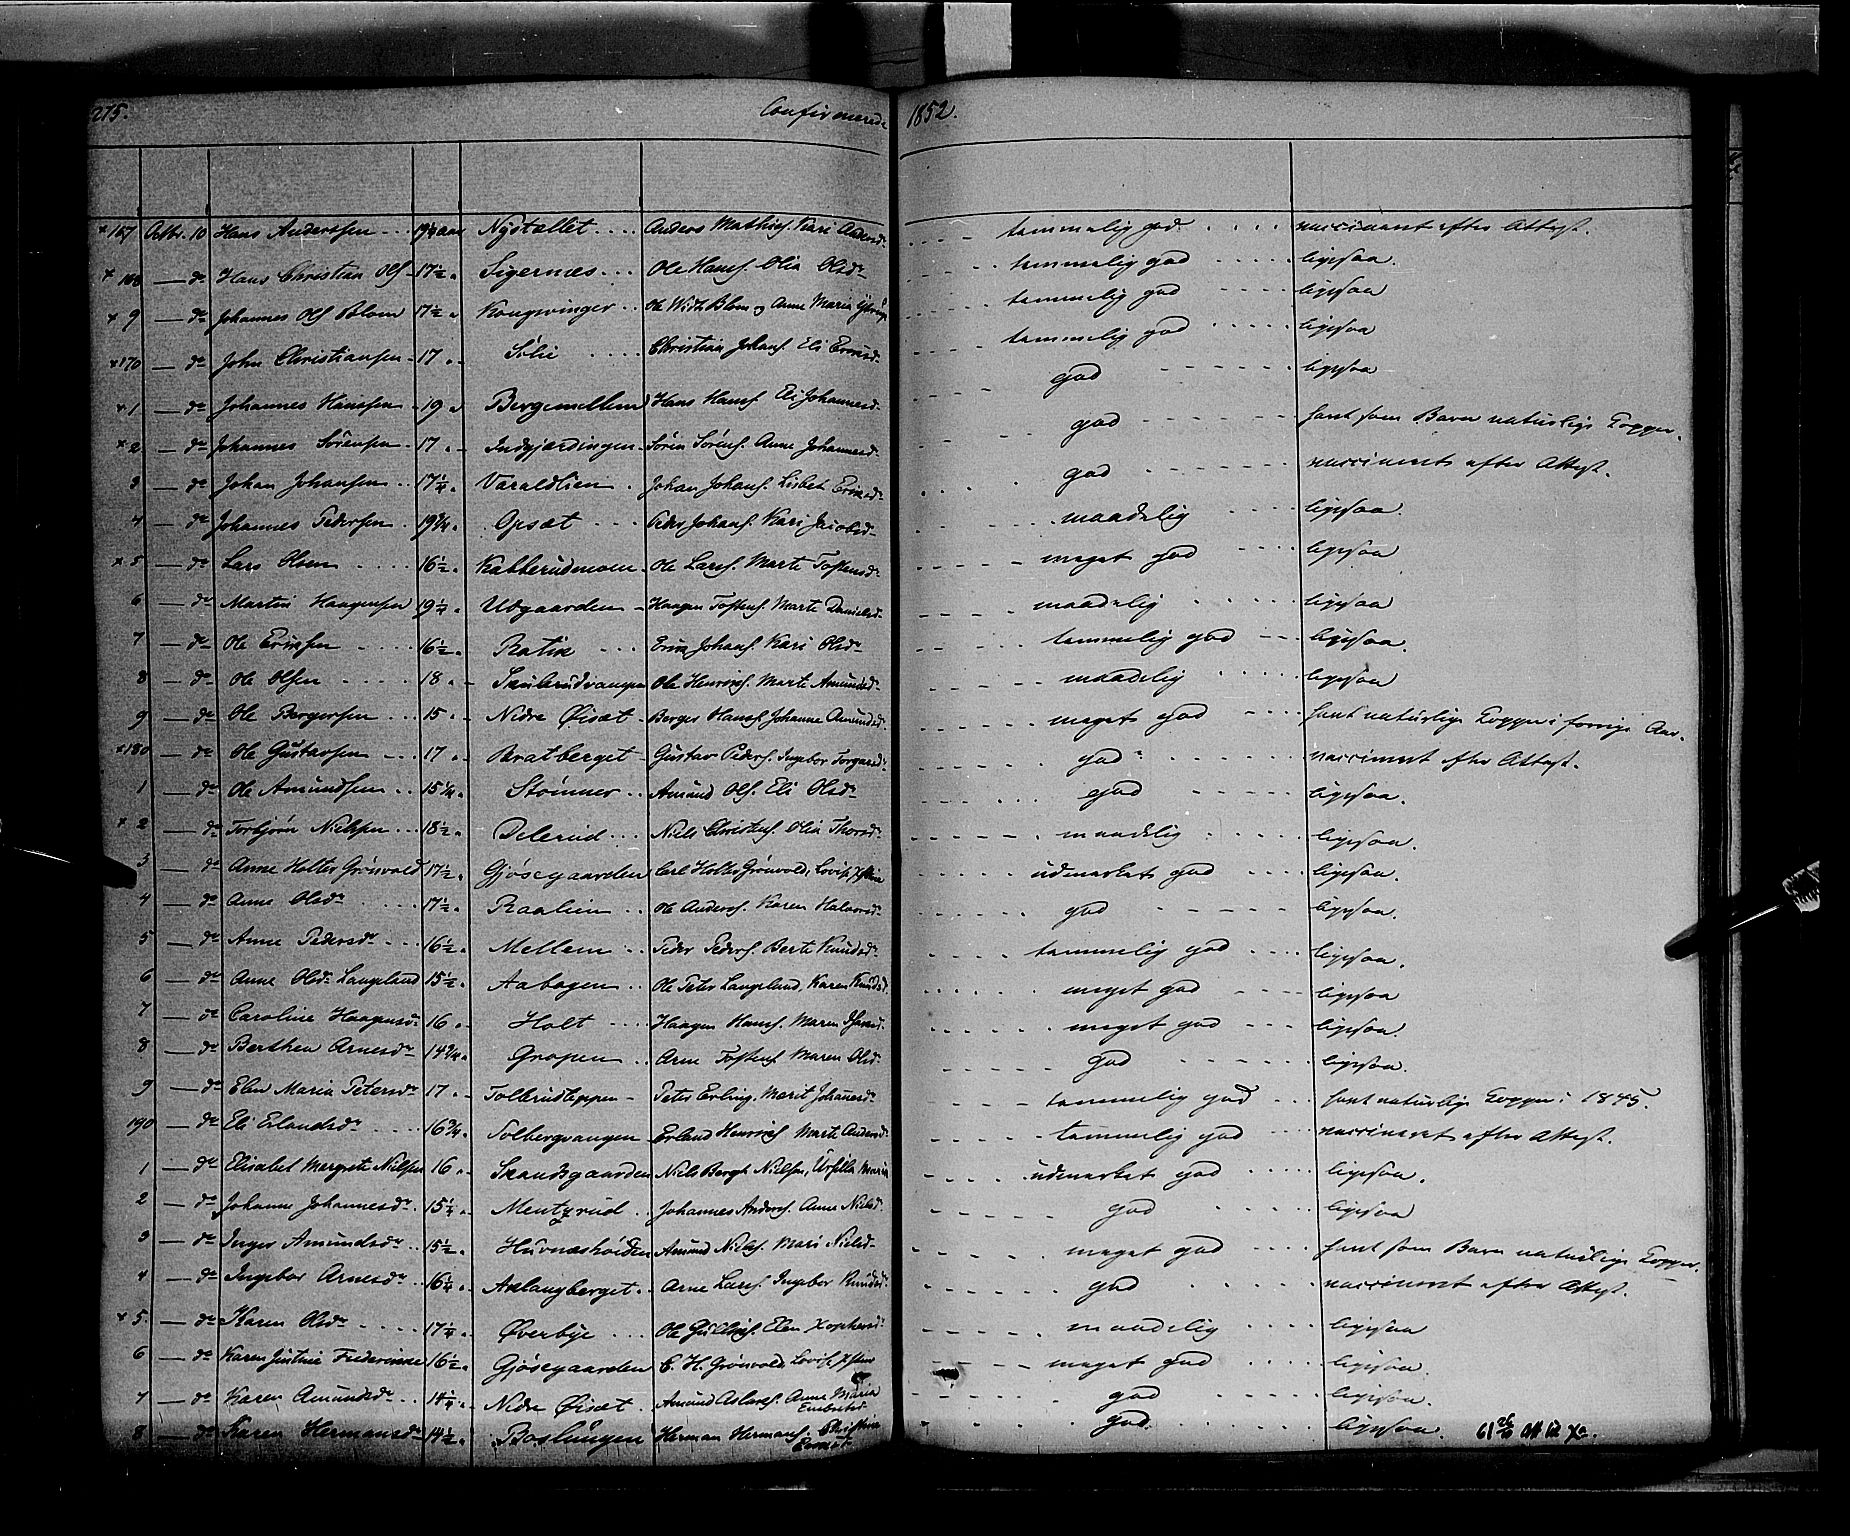 275. Confirmerede 1852.
*167 Octbr. 10 Hans Anderssen 19 3/4 aar Nystallet Anders Mathies. Kari Andersd. temmelig god vaccineret efter Attest.
*168 do Hans Christian Ols. 17 1/2 Sigernæs Ole Hans. Olia Olsdr temmelig god ligesaa.
*9 do Johannes Ols. Blom 17 1/2 Kongsvinger Ole With Blom og Anne Maria temmelig god ligesaa
*170 do John Christiansen 17 Solie Christian Johans. Eli Ericsd. temmelig god ligesaa
*1 do Johannes Hanssen 19 Bergemellem Hans Hans. Eli Johannesd. god ligesaa
*2 do Johannes Sörensen 17 Indgjærdingen Sören Sörens. Anne Johannesd. god havt som Barn naturlige Kopper.
3 do Johan Johansen 17 1/4 Varaldlien Johan Johans. Lisbet Ericsd. god vaccineret efter Attest.
4 do Johannes Pedersen 19 3/4 Opsæt Peder Johans. Kari Jacobsd. maadelig ligesaa.
*5 do Lars Olsen 16 1/2 Kabberudmoen Ole Lars. Marte Tostensd. meget god ligesaa
6 do Martin Haagensen 19 1/4 Udgaarden Haagen Tostens. Marte Danielsd. maadelig ligesaa
7 do Ole Ericsen 16 1/2 Ratik Eric Johans. Kari Olsdr temmelig god ligesaa.
8 do Ole Olsen 18 Skulerudvangen Ole Henrics. Marte Amundsd. maadelig ligesaa
9 do Ole Bergersen 15 Nedre Øisæt Berger Hans. Johanne Amundsd. meget god havt naturlige Kopper i forrige Aar.
*180 do Ole Gustavsen 17 Bratberget Gustav Peders. Ingebor Torgersd. god vaccineret efter Attest.
1 do Ole Amundsen 15 1/4 Stömner Amund Ols. Eli Olsdr god ligesaa.
*2 do Torbjörn Nielsen 18 1/2 Delerud Niels Christens. Olia Thorsd. maadelig ligesaa.
3 do Anne Holter Grönvold 17 1/2 Gjösegaarden Carl Holter Grönvold, Lovise udmærket god ligesaa.
4 do Anne Olsdr 17 1/2 Raalien Ole Anders. Karen Halvorsd. god ligesaa.
5 do Anne Pedersdr 16 1/2 Mellem Peder Peders. Berte Knudsd. temmelig god ligesaa.
6 do Anne Olsdr Langeland 15 1/2 Aabogen Ole Peter Langeland, Karen Knudsd. meget god ligesaa
7 do Caroline Haagensdr 16 Holt Haagen Hans. Maren meget god ligesaa.
8 do Berthea Arnesdr 14 3/4 Gropen Arne Tostens. Maren Olsd. god ligesaa.
9 do Elen Maria Petersdr 17 Tolbrudteppen Peter Erling. Marit Johansdr temmelig god havt naturlige Kopper i 1845.
190 do Eli Erlandsdr 16 3/4 Solbergvangen Erland Henrics. Marte Andersd. temmelig god vaccineret efter Attest.
1 do Elisabet Margrete Nielsen 16 Skandsgaarden Niels Bergh Nielsen, Ursilla Maria udmærket god ligesaa.
2 do Johanne Johannesdr 15 1/4 Mentzrud Johannes Anders. Anne Nielsdr god ligesaa
3 do Inger Amundsdr 15 1/2 Huvnæshöiden Amund Niels. Mari Nielsd. meget god havt som Barn naturlige Kopper.
4 do Ingebor Arnesdr 16 1/4 Aslangberget Arne Lars. Ingebor Knudsdr god vaccineret efter Attest.
*5. do Karen Olsdr 17 1/4 Øverbye Ole Gullics. Elen maadelig ligesaa
6 do Karen Justine Fredericke 16 1/2 Gjösegaarden C. H. Grönvold Lovise meget god ligesaa.
7 do Karen Amundsdr 14 1/4 Nedre Øisæt Amund Aslaks. Anne Maria Embretsd. god ligesaa.
8 do Karen Hermansdr 14 1/2 Baslungen Herman Hermans. Christine god. ligesaa.